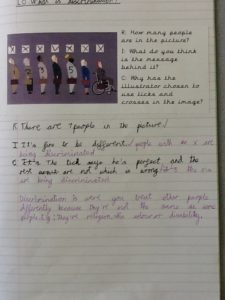 LO: What is discrimination?
R: How many people
are in the picture?
I: What do you think
is the message
behind it?
C: Why has the
illustrator chosen to
use ticks and
crosses in the image?
R There are 7 people in the picture
I It's fine to be different. people with an x are
being discriminated
C It's the tick says he's perfect and the
rest are not which is wrong. it's the x's
are being discriminated
Discrimination is were you treat other people
differently because they're not the same as some
people. E.g: they're religion, skin colour or disability.